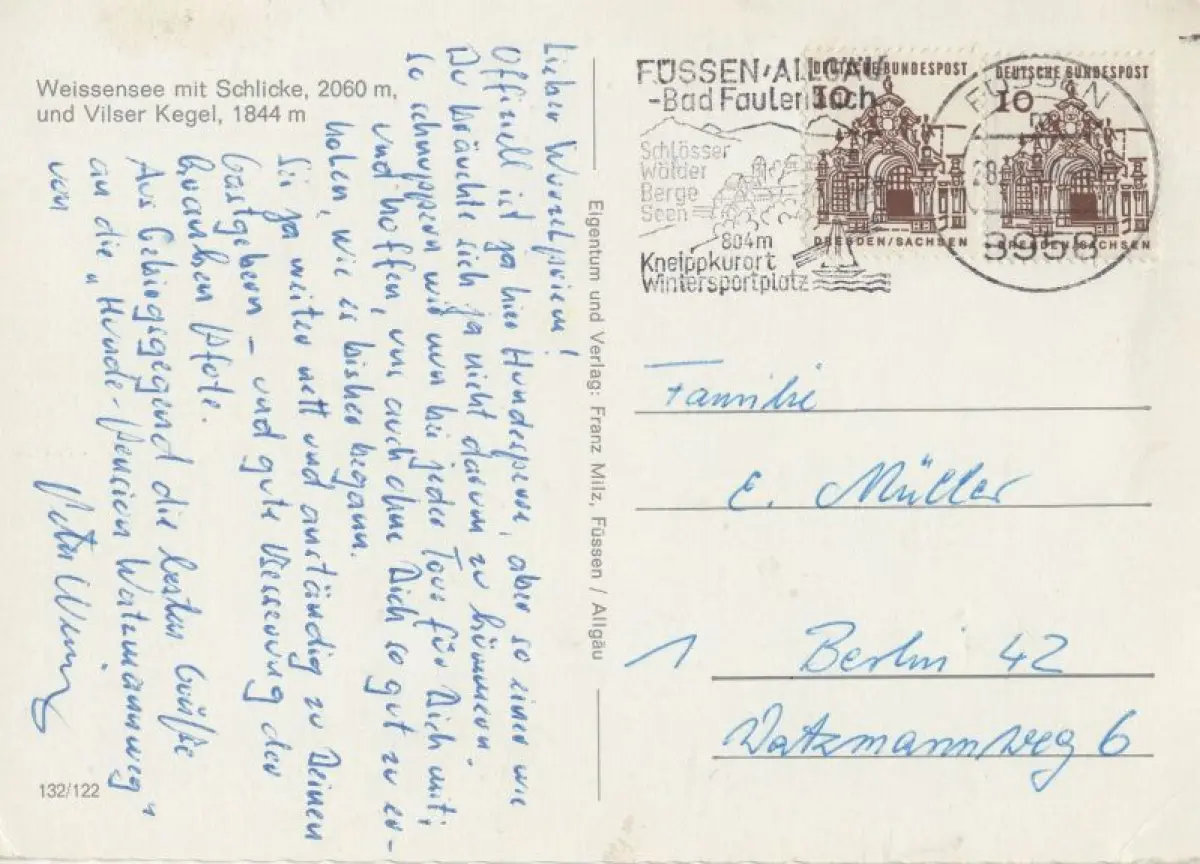 Weissensee mit Schlicke, 2060 m,
und Vilser Kegel, 1844 m
Lieber Wurzelprien!
Offiziell ist ja hier Hundesperre, aber so einer wie
Du bräuchte sich ja nicht darum zu kümmern.
So schnuppern wir nun bei jeder Tour für Dich mit;
und hoffen, uns auch ohne Dich so gut zu er-
holen, wie es bisher begann.
Sei ja weiter nett und anständig zu Deinen
Gastgebern – und gute Besserung der
kranken Pfote.
Aus Gebirgsgegend die besten Grüße
an die „Hunde-Pension Watzmannweg“
von
132/122
Eigentum und Verlag: Franz Milz, Füssen / Allgäu
FÜSSEN/ALLGÄU
-Bad Faulenbach
Schlösser
Wälder
Berge
Seen
804m
Kneippkurort
Wintersportplatz
DEUTSCHE BUNDESPOST
10
DRESDEN/SACHSEN
DEUTSCHE BUNDESPOST
10
DRESDEN/SACHSEN
FÜSSEN
28.
8958
Familie
E. Müller
1 Berlin 42
Watzmannweg 6